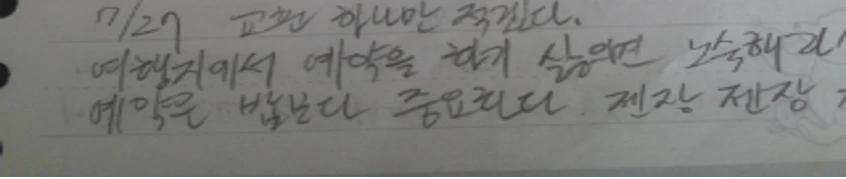 7/27 교훈 하나만 적겠다.
여행지에서 예약을 하기 싫으면 노숙해라
예약은 밥보다 중요하다 젠장 젠장